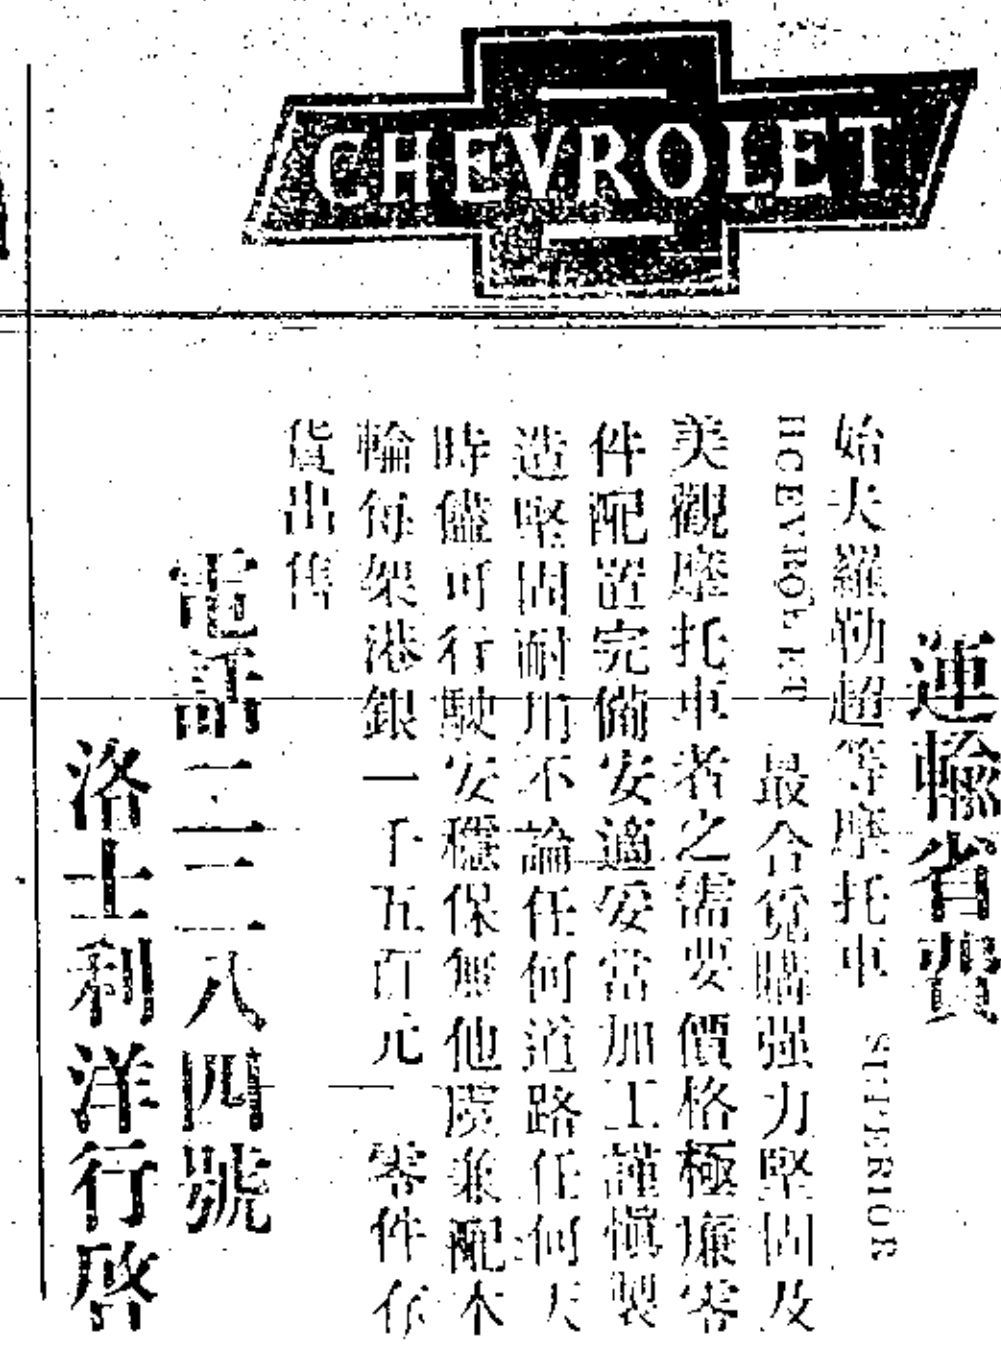 CHEVROLET
運輸省費
始夫羅勒超等摩托車 SUPERIOR
HCEVROLET 最合覓購强力堅固及
美觀摩托車者之需要價格極廉零
件配置完備安適妥當加工謹慎製
造堅固耐用不論任何道路任何天
時儘可行駛安穩保無他虞兼配木
輪每架港銀一千五百元 零件存
貨出售
電話二二一八四號
洛士利洋行啓